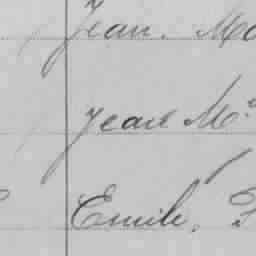 Jean. Mc
Jean Mc
Emile.